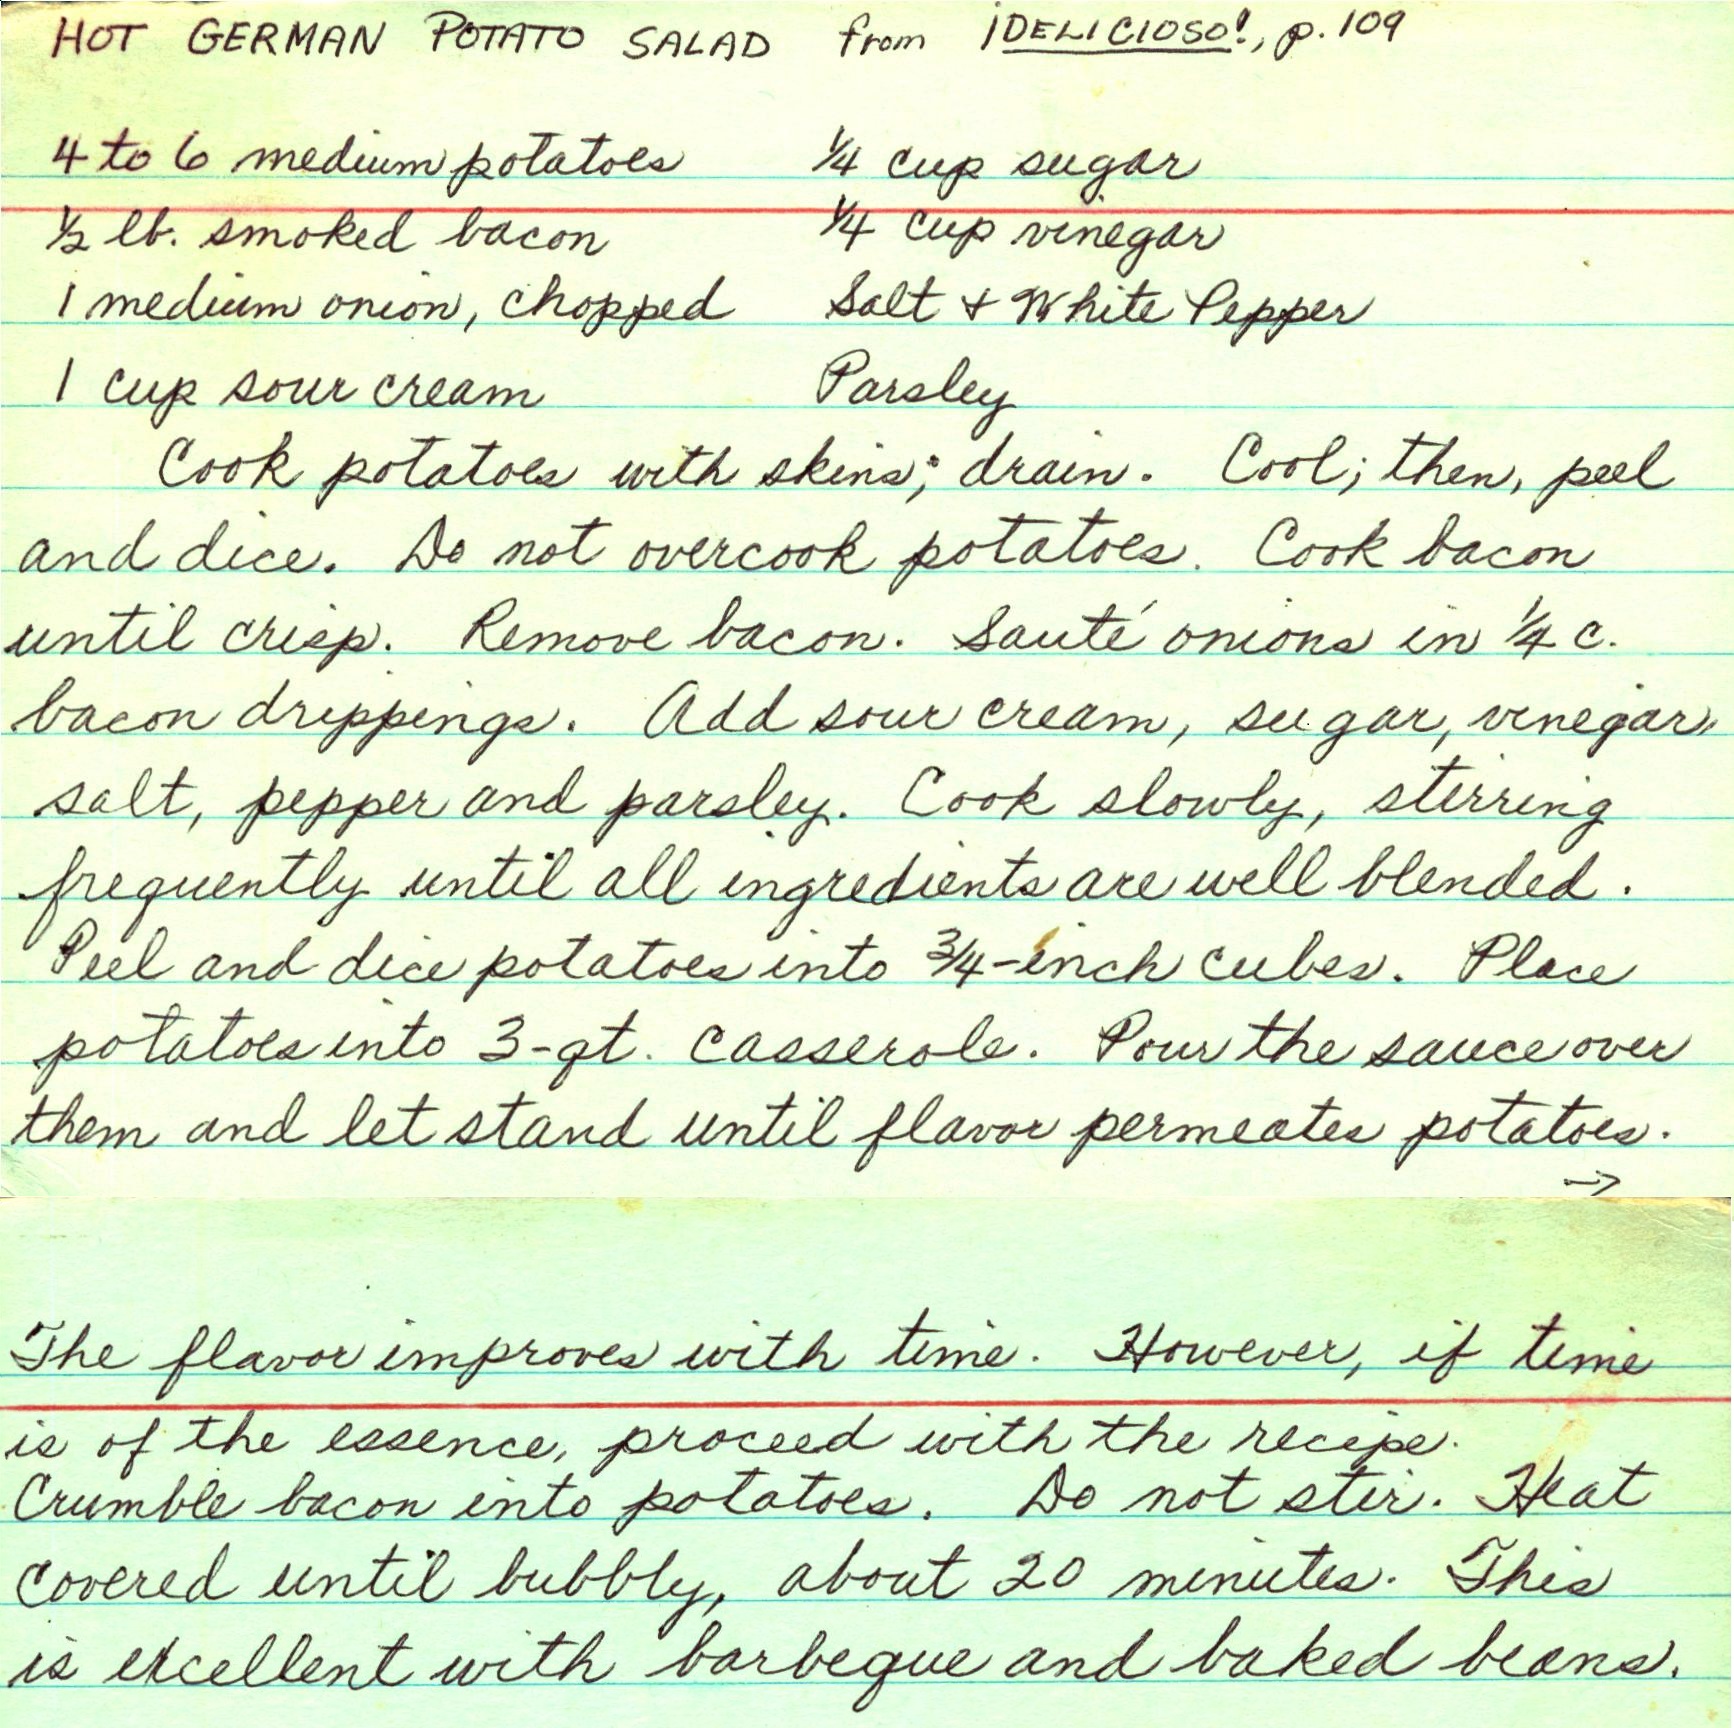 HOT GERMAN POTATO SALAD from ¡DELICIOSO!, p. 109
4 to 6 medium potatoes
½ lb. smoked bacon
1 medium onion, chopped
1 cup sour cream
¼ cup sugar
¼ cup vinegar
Salt + White Pepper
Parsley
Cook potatoes with skins; drain. Cool; then, peel
and dice. Do not overcook potatoes. Cook bacon
until crisp. Remove bacon. Sauté onions in ¼ c.
bacon drippings. Add sour cream, sugar, vinegar,
salt, pepper and parsley. Cook slowly, stirring
frequently until all ingredients are well blended.
Peel and dice potatoes into ¾-inch cubes. Place
potatoes into 3-qt. casserole. Pour the sauce over
them and let stand until flavor permeates potatoes.
→
The flavor improves with time. However, if time
is of the essence, proceed with the recipe.
Crumble bacon into potatoes. Do not stir. Heat
covered until bubbly, about 20 minutes. This
is excellent with barbeque and baked beans.